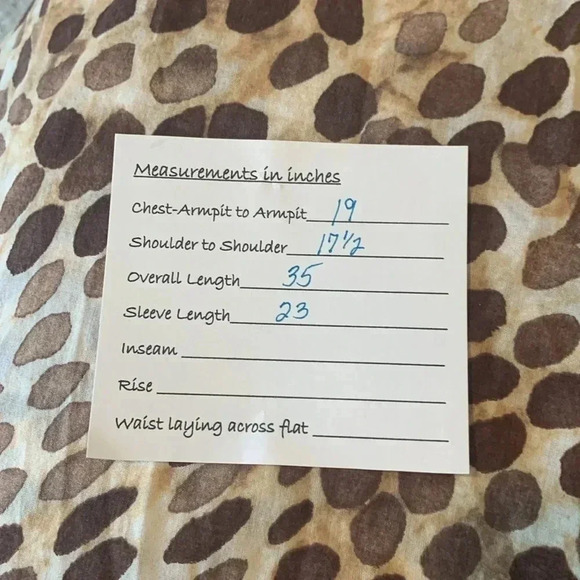 Measurements in inches
Chest-Armpit to Armpit 19
Shoulder to Shoulder 17 1/2
Overall Length 35
Sleeve Length 23
Inseam
Rise
Waist laying across flat